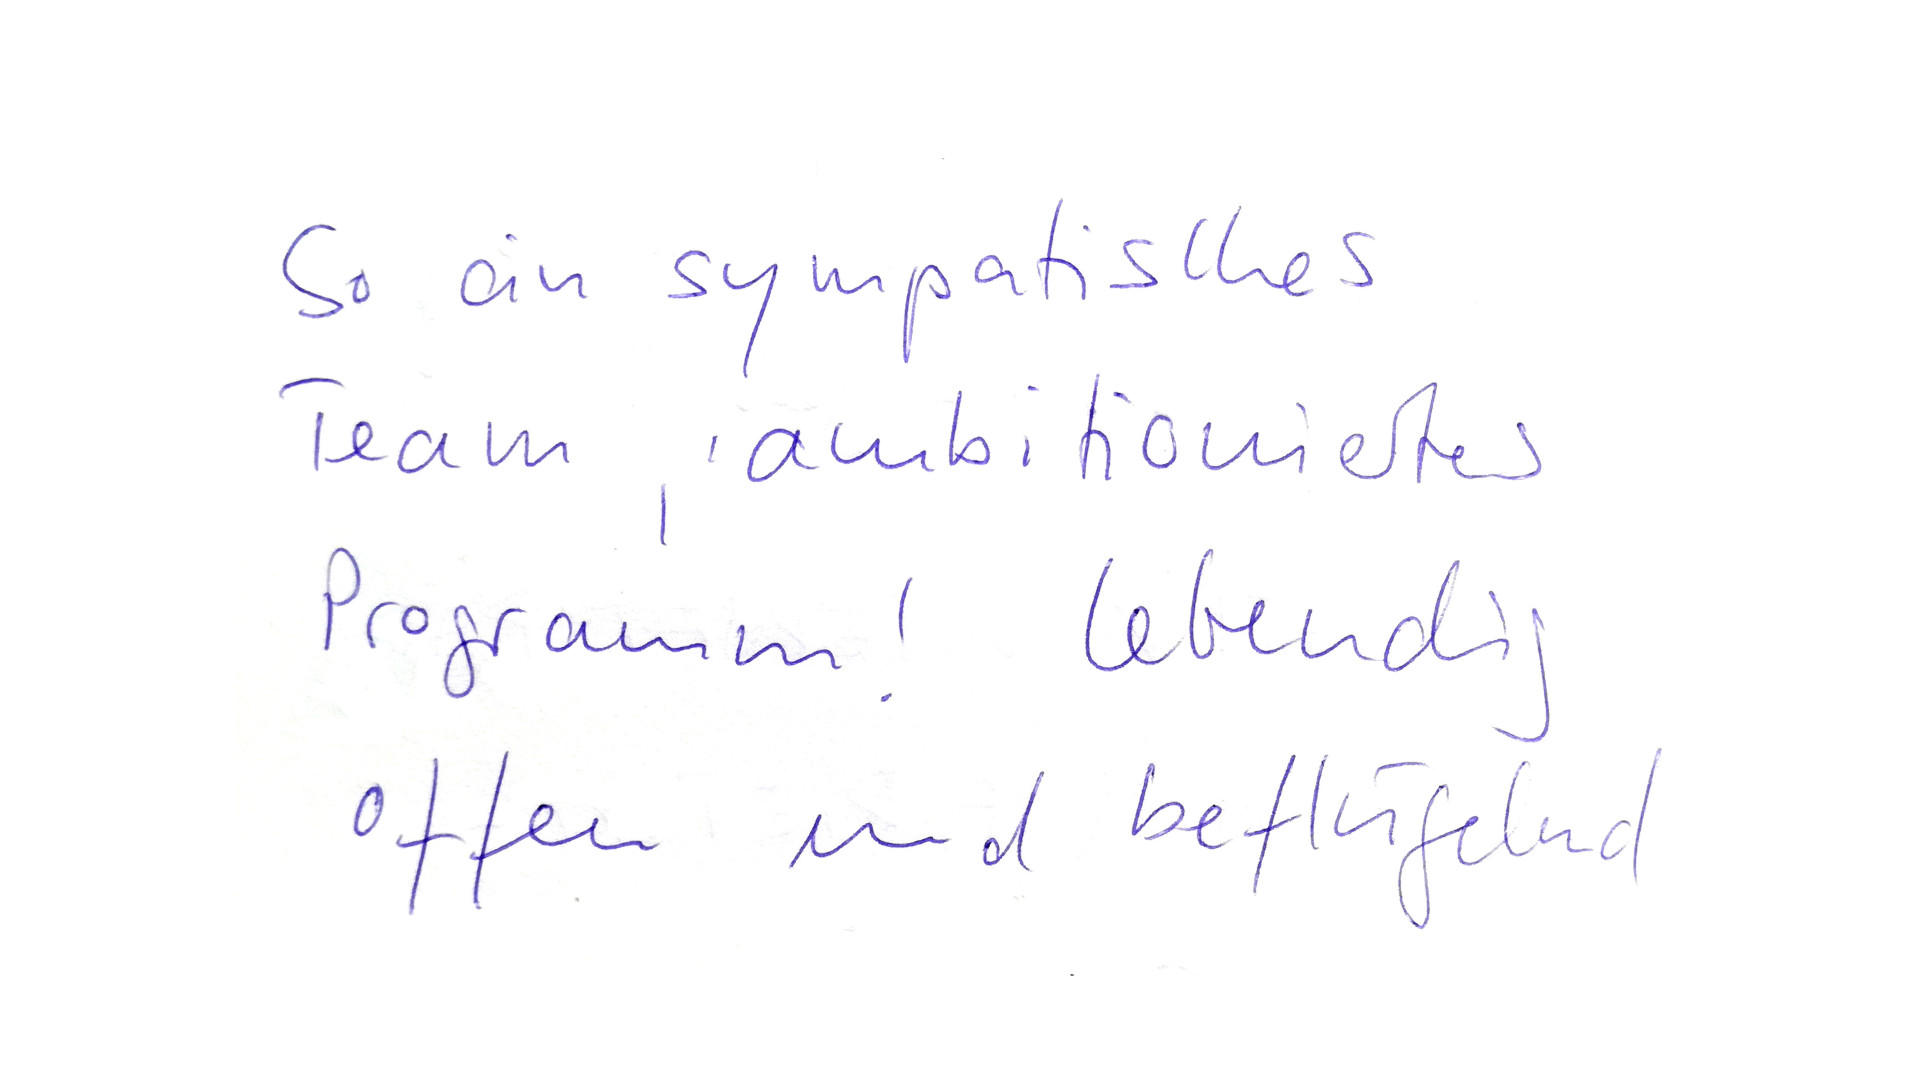 So ein sympatisches
Team, ambitioniertes
Programm! lebendig
offen und beflügelnd